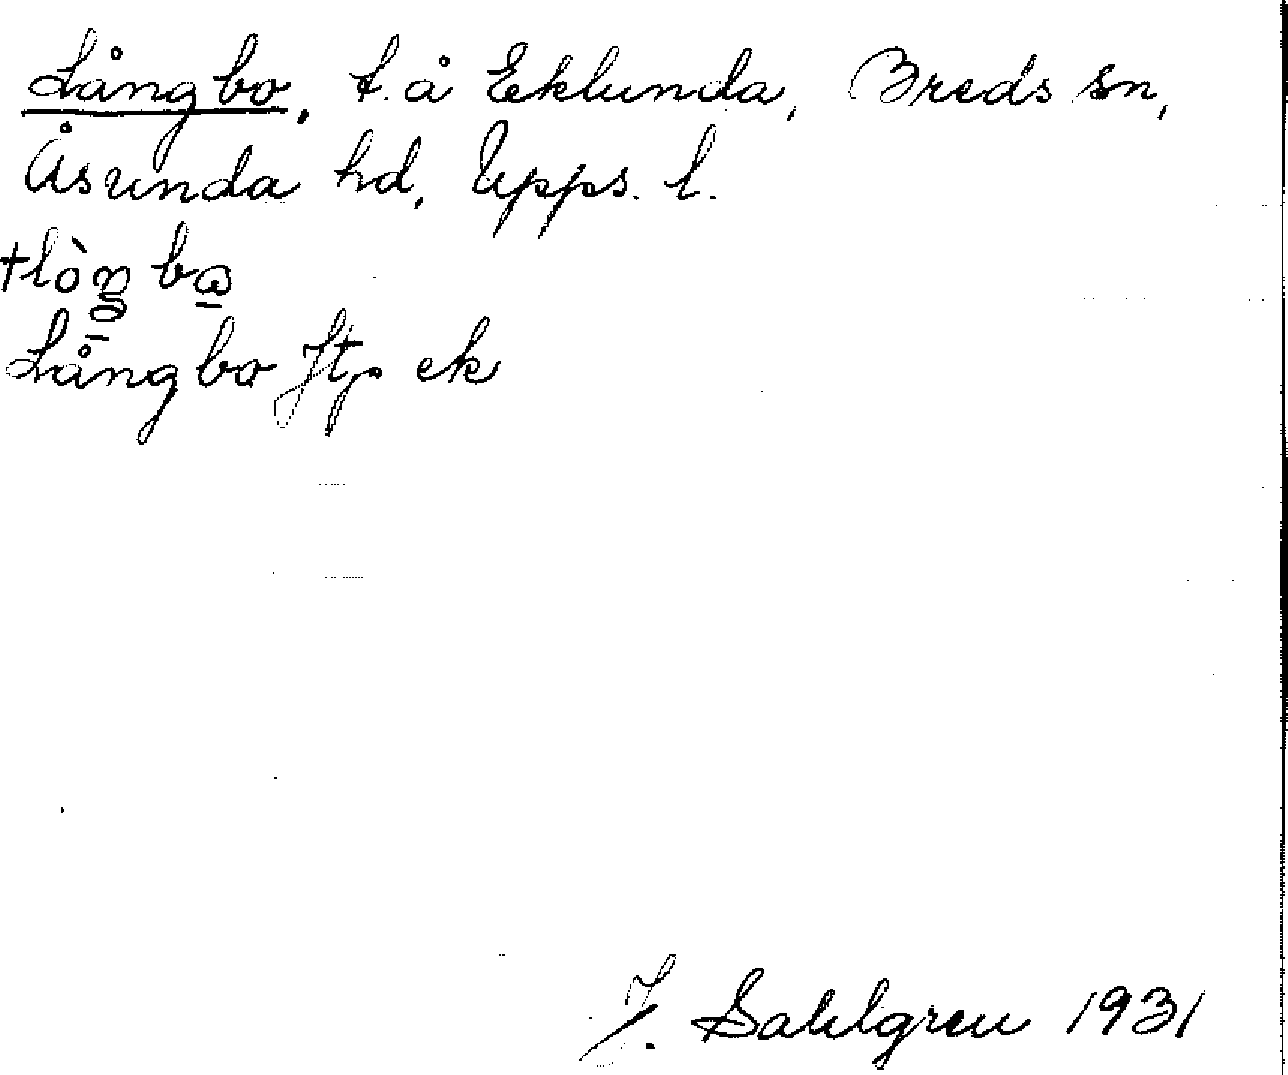 Långbo, t. å Eklunda, Breds sn,
Åsunda hd, Upps. l.
Långbo Jtp ek
J. Sahlgren 1931